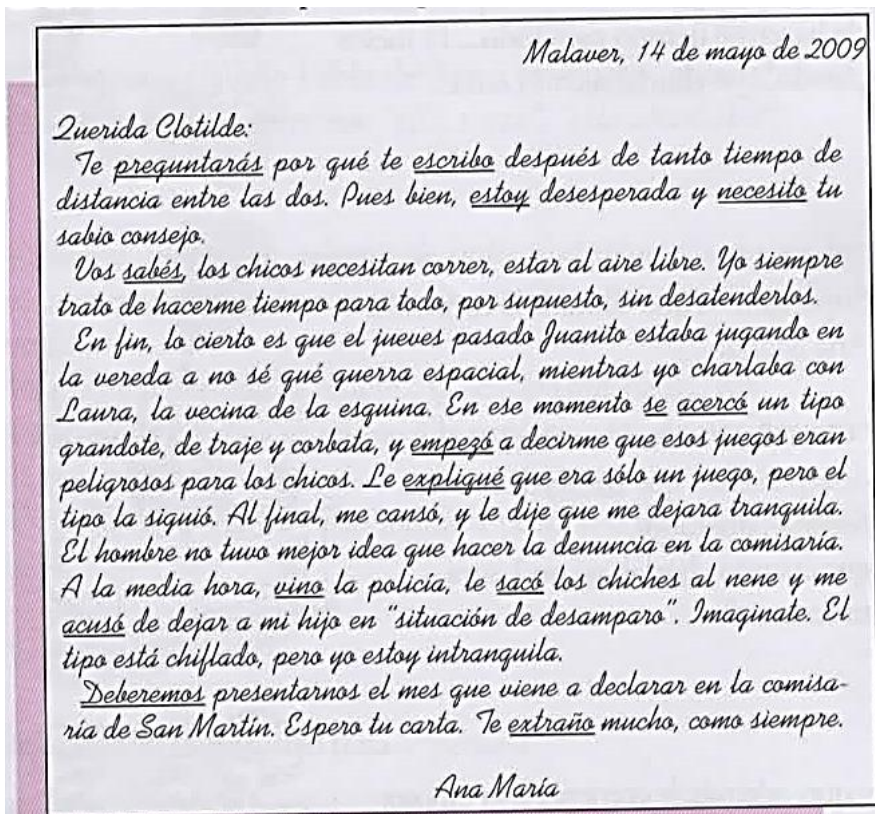 Malaver, 14 de mayo de 2009
Querida Clotilde:
Te preguntarás por qué te escribo después de tanto tiempo de
distancia entre las dos. Pues bien, estoy desesperada y necesito tu
sabio consejo.
Vos sabés, los chicos necesitan correr, estar al aire libre. Yo siempre
trato de hacerme tiempo para todo, por supuesto, sin desatenderlos.
En fin, lo cierto es que el jueves pasado Juanito estaba jugando en
la vereda a no sé qué guerra espacial, mientras yo charlaba con
Laura, la vecina de la esquina. En ese momento se acercó un tipo
grandote, de traje y corbata, y empezó a decirme que esos juegos eran
peligrosos para los chicos. Le expliqué que era sólo un juego, pero el
tipo la siguió. Al final, me cansó, y le dije que me dejara tranquila.
El hombre no tuvo mejor idea que hacer la denuncia en la comisaría.
A la media hora, vino la policía, le sacó los chiches al nene y me
acusó de dejar a mi hijo en "situación de desamparo". Imaginate. El
tipo está chiflado, pero yo estoy intranquila.
Deberemos presentarnos el mes que viene a declarar en la comisa-
ría de San Martín. Espero tu carta. Te extraño mucho, como siempre.
Ana María